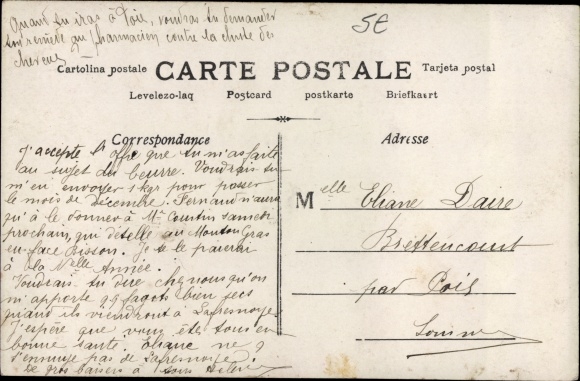 Quand tu iras à Poix, voudras tu demander
ton remède au pharmacien contre la chute des
cheveux
5E
Cartolina postale CARTE POSTALE Tarjeta postal
Levelezo-laq Postcard postkarte Briefkaart
Correspondance
J'accepte l'offre que tu m'as faite
au sujet du beurre. Voudrais-tu
m'en envoyer 1 kgr pour passer
le mois de décembre. Fernand n'aura
qu'à le donner à Mr Courtin samedi
prochain, qui dételle au Mouton Gras
en face Bisson. Je te le paierai
à la Nelle Année.
Voudrais tu dire chez nous qu'on
m'apporte 99 fagots bien secs
quand ils viendront à Lafresnoye.
J'espère que vous êtes tous en
bonne santé. Eliane ne
s'ennuye pas de Lafresnoye?
de gros baisers à tous
Adresse
Melle Eliane Daire
Brettencourt
par Poix
Somme